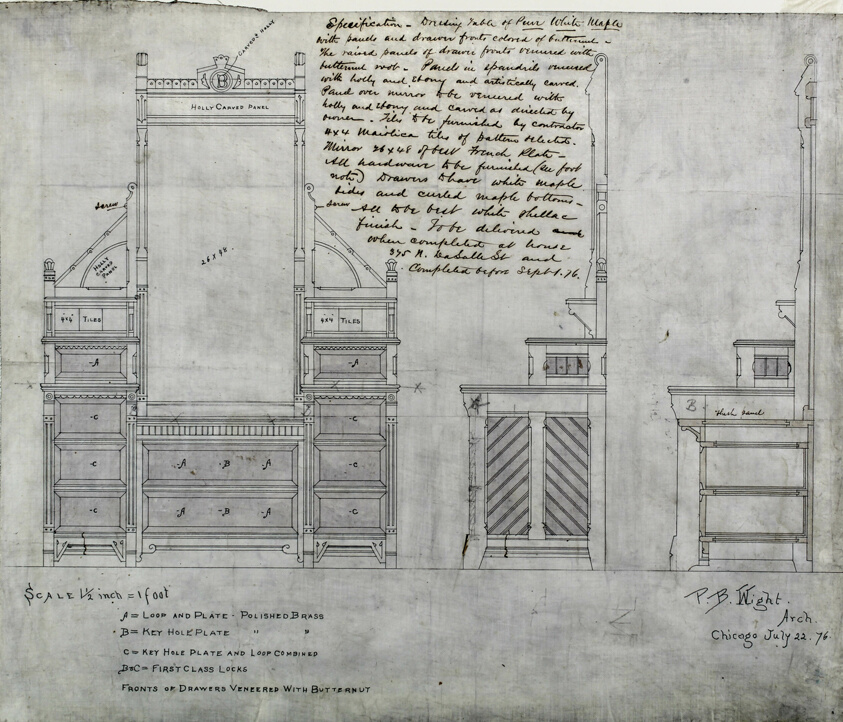 Specification - Dressing Table of Pure White Maple
with panels and drawer fronts colored of butternut -
The raised panels of drawer fronts veneered with
butternut root. - Panels in spandrils veneered
with holly and ebony and artistically carved.
Panel over mirror to be veneered with
holly and ebony and carved as directed by
owner. - Tiles to be furnished by contractor
4x4 Maiolica tiles of pattern selected.
Mirror 26x48 of best French Plate -
All hardware to be furnished (see foot
note) Drawers to have white maple
sides and curled maple bottoms -
All to be best white shellac
finish - To be delivered
when completed at house
395 N. LaSalle St and
Completed before Sept. 1. 76.
CARVED HOLLY
B
HOLLY CARVED PANEL
screw
screw
HOLLY CARVED PANEL
26 x 48.
4x4" TILES
4x4" TILES
-A
-A
-C
-C
-C
-C
-C
-C
-A -B -A
-A -B -A
B - Flush panel
SCALE 1½ inch = 1 foot
A = LOOP AND PLATE - POLISHED BRASS
B = KEY HOLE PLATE " "
C = KEY HOLE PLATE AND LOOP COMBINED
B&C = FIRST CLASS LOCKS
FRONTS OF DRAWERS VENEERED WITH BUTTERNUT
P. B. Wight.
Arch.
Chicago July 22. 76.